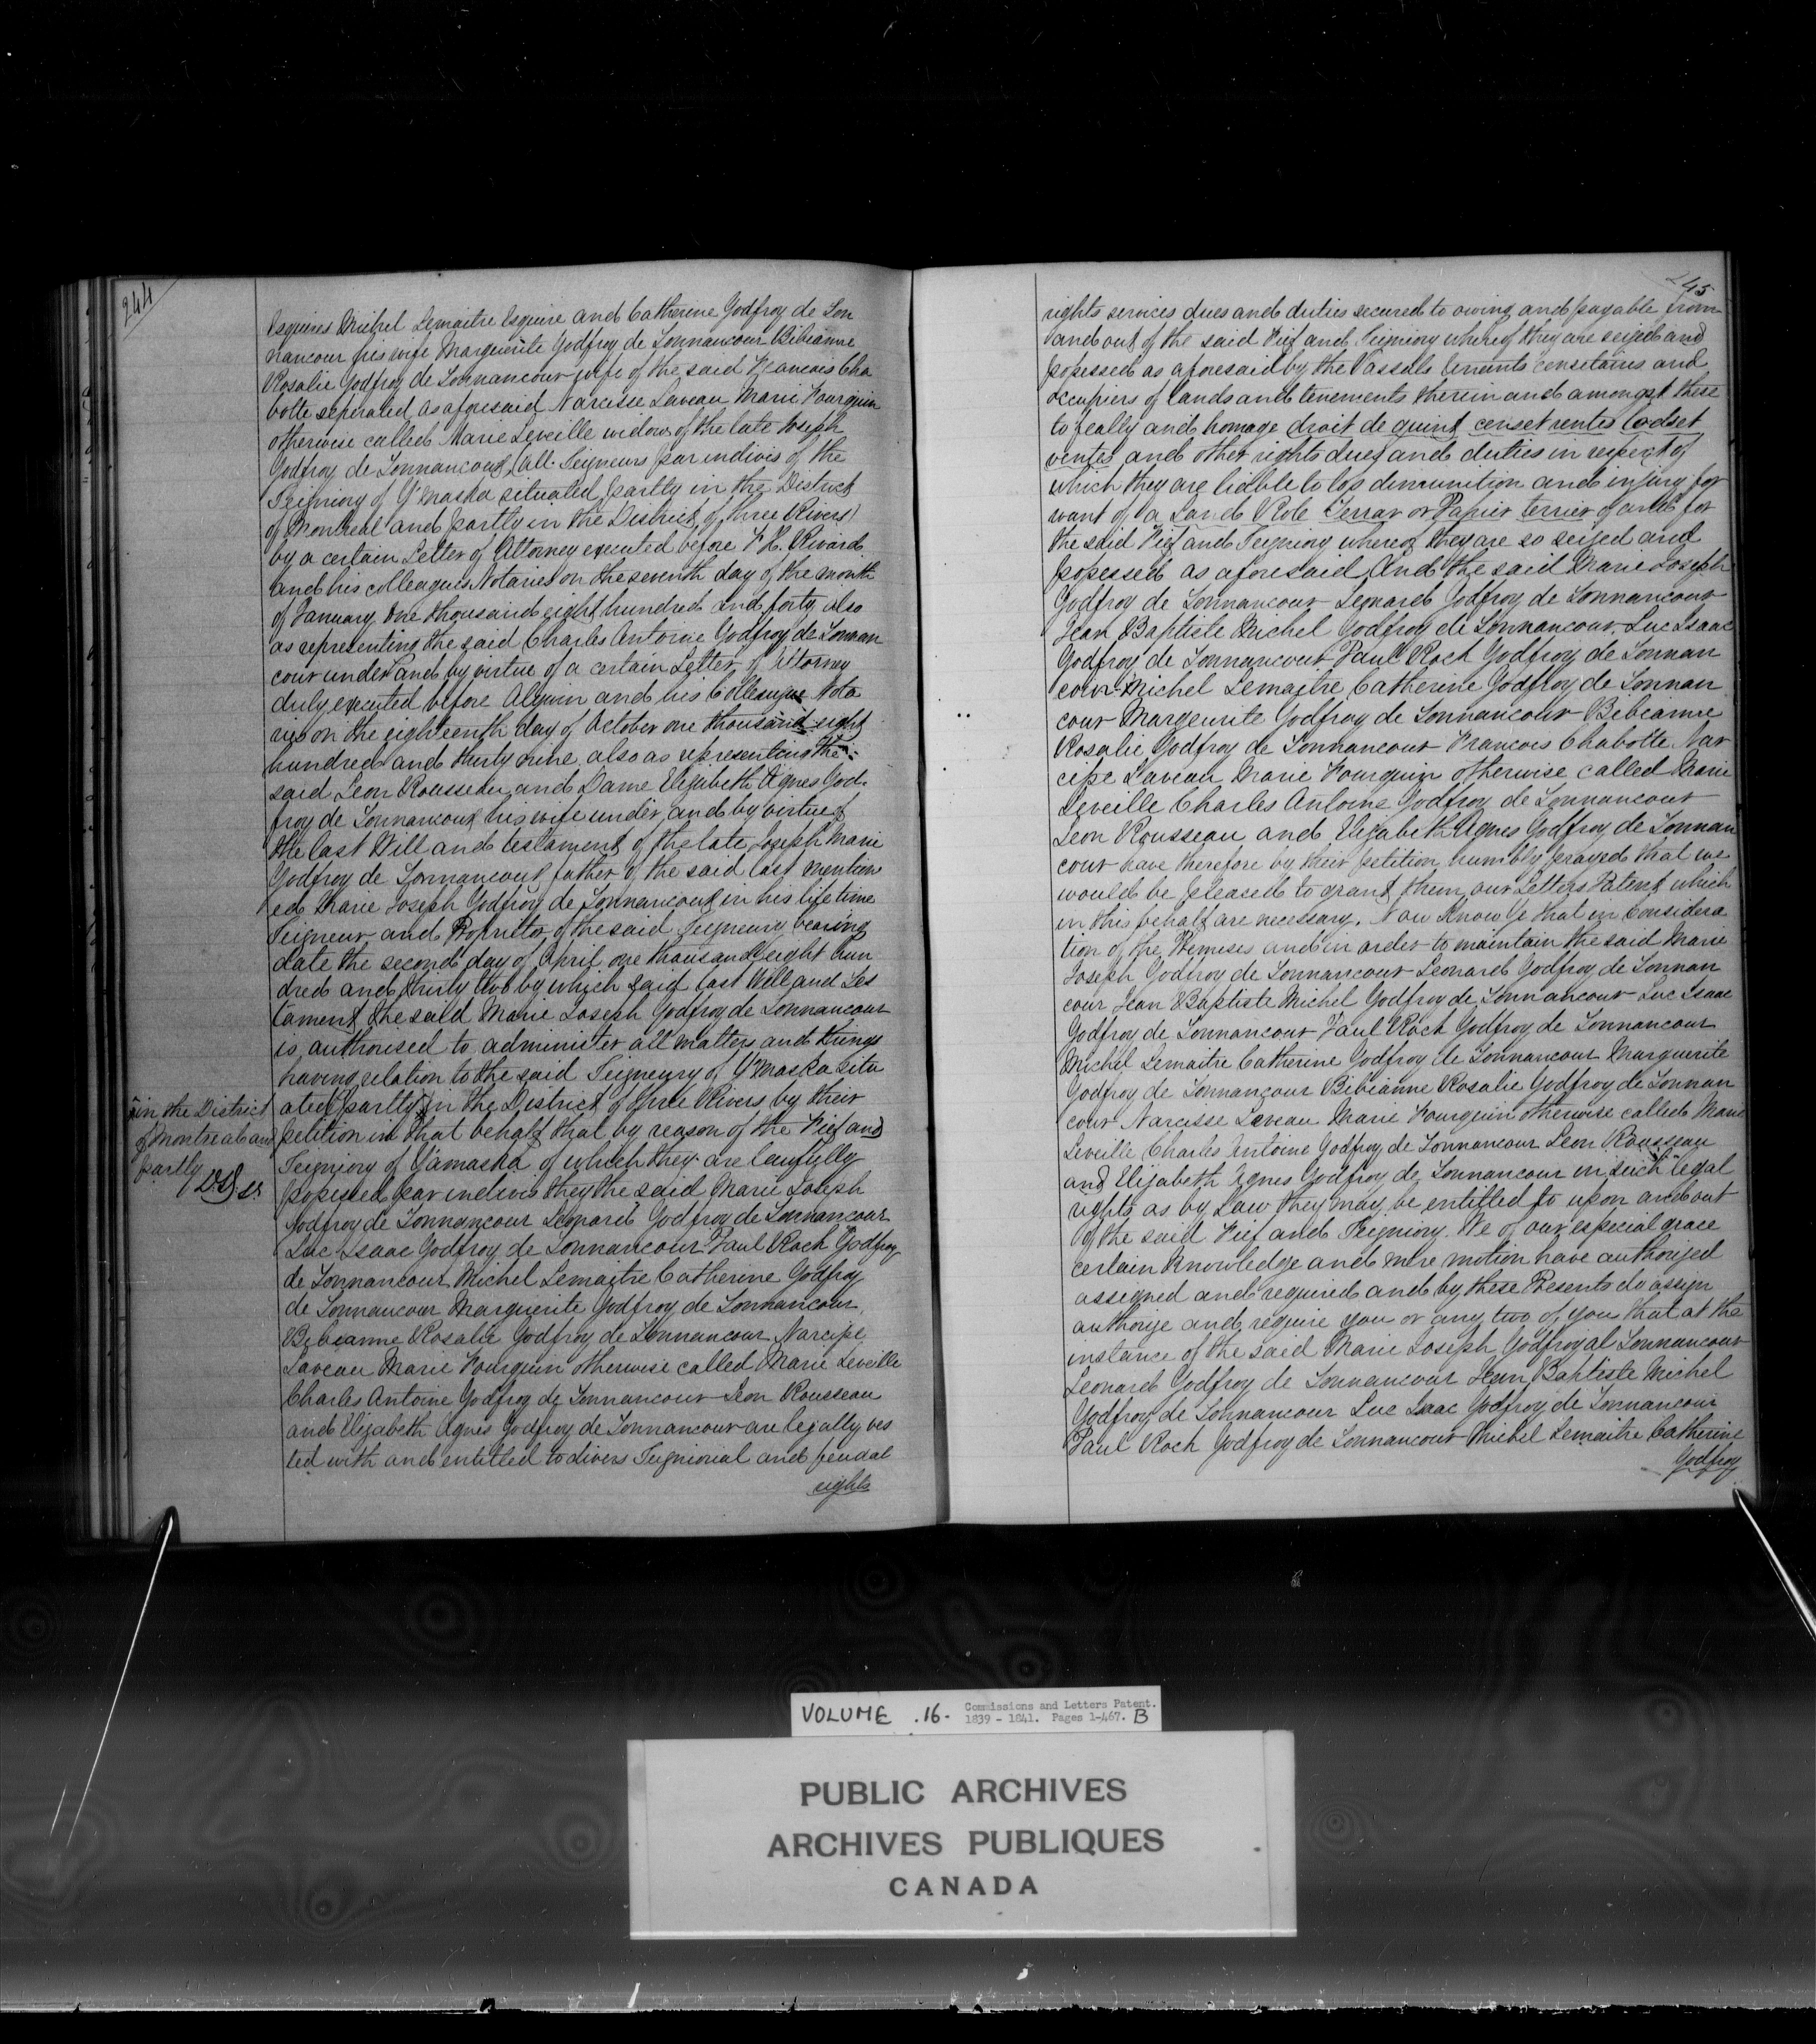 244
Esquires Michel Lemaitre Esquire and Catherine Godfroy de Ton
nancour his wife Marguerite Godfroy de Tonnancour Bibianne
Rosalie Godfroy de Tonnancour wife of the said Francois Cha
botte seperated as aforesaid Narcisse Laveau Marie Fourquin
otherwise called Marie Leveille widow of the late Joseph
Godfroy de Tonnancour (all Seigneurs par indivis of the
Seigniory of Y'maska situated partly in the District
of Montreal and partly in the District of three Rivers)
by a certain Letter of Attorney executed before F H. Rivard
and his colleagues Notaries on the seventh day of the month
of January one thousand eight hundred and forty also
as representing the said Charles Antoine Godfroy de Tonnan
cour under and by virtue of a certain Letter of Attorney
duly executed before and his Colleague Nota
ries on the eighteenth day of October one thousand eight
hundred and thirty nine also as representing the
said Leon Rousseau and Dame Elizabeth Agnes God
froy de Tonnancour his wife under and by virtue of
the last Will and testament of the late Joseph Marie
Godfroy de Tonnancour father of the said last mention
ed Marie Joseph Godfroy de Tonnancour in his life time
Seigneur and Proprietor of the said Seigneury bearing
date the second day of April one thousand eight hun
dred and thirty two by which said last Will and Tes
tament the said Marie Joseph Godfroy de Tonnancour
is authorised to administer all matters and things
having relation to the said Seigneury of Y'maska situ
ated partly in the District of three Rivers by their
in the District
of Montreal and
partly
petition in that behalf that by reason of the Fief and
Seigniory of Yamaska of which they are lawfully
possessed par indivis they the said Marie Joseph
Godfroy de Tonnancour Leonard Godfroy de Tonnancour
Luc Isaac Godfroy de Tonnancour Paul Roch Godfroy
de Tonnancour Michel Lemaitre Catherine Godfroy
de Tonnancour Marguerite Godfroy de Tonnancour
Bibianne Rosalie Godfroy de Tonnancour Narcisse
Laveau Marie Fourquin otherwise called Marie Leveille
Charles Antoine Godfroy de Tonnancour Leon Rousseau
and Elizabeth Agnes Godfroy de Tonnancour are legally ves
ted with and entitled to divers Seigniorial and feudal
rights
245
rights services dues and duties secured to owing and payable from
and out of the said Fief and Seigniory whereof they are seized and
possessed as aforesaid by the Vassals tenants censitaires and
occupiers of lands and tenements therein and amongst these
to fealty and homage droit de quint cens et rentes lods et
ventes and other rights dues and duties in respect of
which they are liable to loss diminution and injury for
want of a Land Role Terrar or Papier terrier of and for
the said Fief and Seigniory whereof they are so seized and
possessed as aforesaid And the said Marie Joseph
Godfroy de Tonnancour Leonard Godfroy de Tonnancour
Jean Baptiste Michel Godfroy de Tonnancour, Luc Isaac
Godfroy de Tonnancour Paul Roch Godfroy de Tonnan
cour Michel Lemaitre Catherine Godfroy de Tonnan
cour Marguerite Godfroy de Tonnancour Bibianne
Rosalie Godfroy de Tonnancour Francois Chabotte Nar
cisse Laveau Marie Fourquin otherwise called Marie
Leveille Charles Antoine Godfroy de Tonnancour
Leon Rousseau and Elizabeth Agnes Godfroy de Tonnan
cour have therefore by their petition humbly prayed that we
would be pleased to grant them our Letters Patent which
in this behalf are necessary. Now Know Ye that in considera
tion of the Premises and in order to maintain the said Marie
Joseph Godfroy de Tonnancour Leonard Godfroy de Tonnan
cour Jean Baptiste Michel Godfroy de Tonnancour Luc Isaac
Godfroy de Tonnancour Paul Roch Godfroy de Tonnancour
Michel Lemaitre Catherine Godfroy de Tonnancour Marguerite
Godfroy de Tonnancour Bibianne Rosalie Godfroy de Tonnan
cour Narcisse Laveau Marie Fourquin otherwise called Marie
Leveille Charles Antoine Godfroy de Tonnancour Leon Rousseau
and Elizabeth Agnes Godfroy de Tonnancour in such legal
rights as by Law they may be entitled to upon and out
of the said Fief and Seigniory. We of our especial grace
certain Knowledge and mere motion have authorized
assigned and required and by these Presents do assign
authorize and require you or any two of you that at the
instance of the said Marie Joseph Godfroy de Tonnancour
Leonard Godfroy de Tonnancour Jean Baptiste Michel
Godfroy de Tonnancour Luc Isaac Godfroy de Tonnancour
Paul Roch Godfroy de Tonnancour Michel Lemaitre Catherine
Godfroy
VOLUME .16. Commissions and Letters Patent.
1839 - 1841. Pages 1-467. B
PUBLIC ARCHIVES
ARCHIVES PUBLIQUES
CANADA